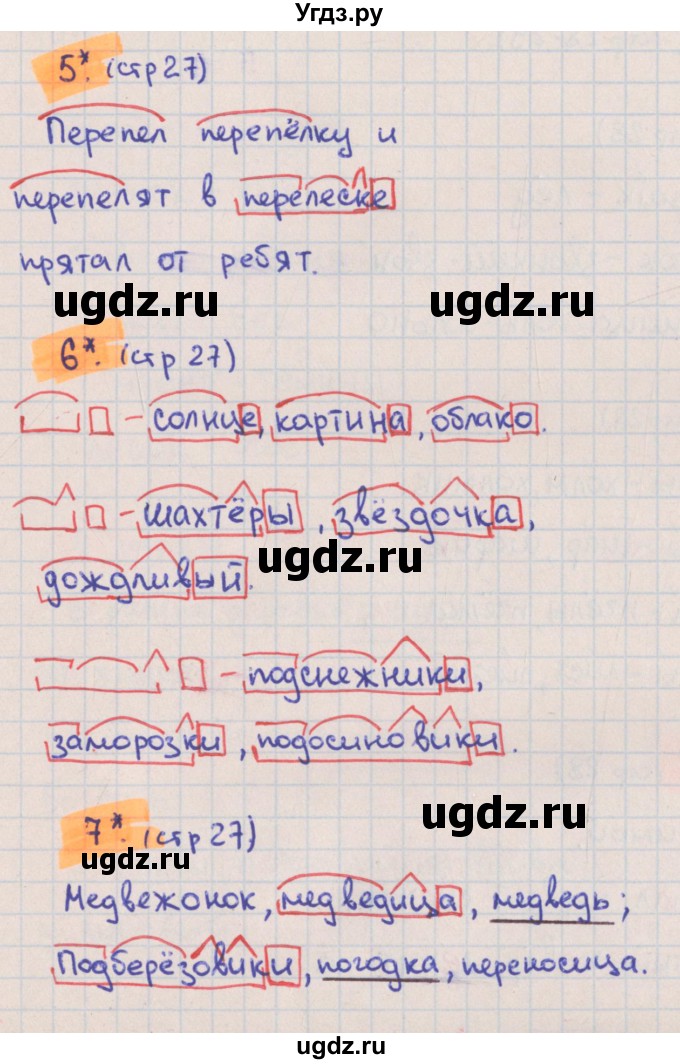 Угдз.ру
5*. (стр 27)
Перепел перепёлку и
перепелят в перелеске
прятал от ребят.
ugdz.ru ugdz.ru
6*. (стр 27)
– солнце, картина, облако.
– шахтёры, звёздочка,
ugdz.ru
дождливый.
– подснежники,
заморозки, подосиновики.
ugdz.ru
7*. (стр 27)
ugdz.ru
Медвежонок, медведица, медведь;
Подберёзовики, погодка, переносица.
ugdz.ru